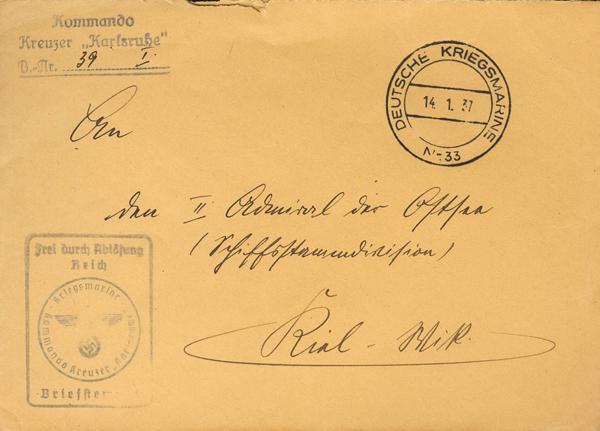 Kommando
Kreuzer „Karlsruhe"
B.-Nr. 39 I.
DEUTSCHE KRIEGSMARINE
14. 1. 37
Nr 33
An
den II. Admiral der Ostsee
(Schiffsstammdivision)
Kiel - Wik.
Frei durch Ablösung
Reich
Kriegsmarine
Kommando Kreuzer
Briefste